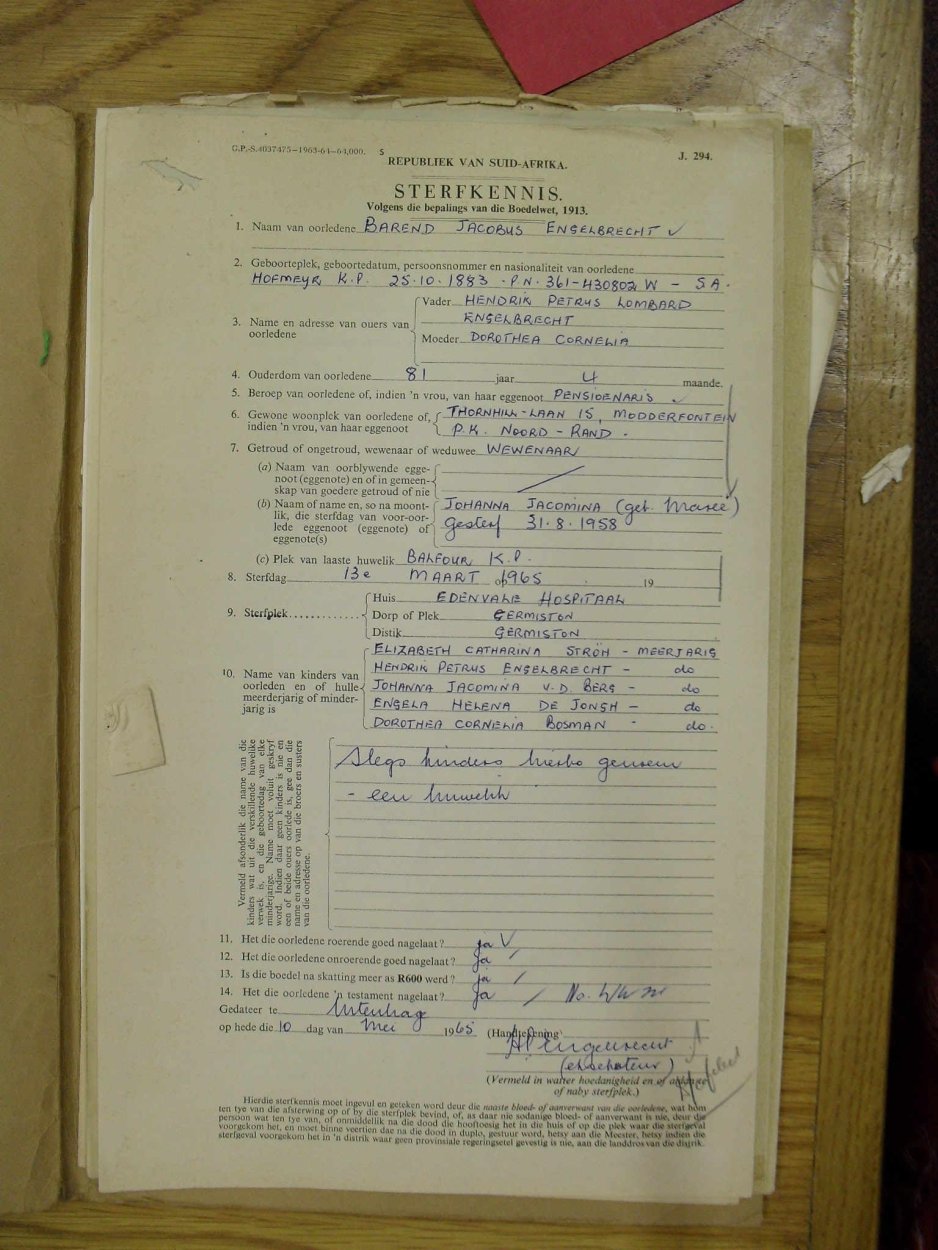 G.P.-S.4037475—1963-64—64,000. S
J. 294.
REPUBLIEK VAN SUID-AFRIKA.
STERFKENNIS.
Volgens die bepalings van die Boedelwet, 1913.
1. Naam van oorledene BAREND JACOBUS ENGELBRECHT ✓
2. Geboorteplek, geboortedatum, persoonsnommer en nasionaliteit van oorledene
HOFMEYR K.P. 25.10.1883 . P.N. 361-430802 W - S.A.
3. Name en adresse van ouers van oorledene
Vader HENDRIK PETRUS LOMBARD
ENGELBRECHT
Moeder DOROTHEA CORNELIA
4. Ouderdom van oorledene 81 jaar 4 maande.
5. Beroep van oorledene of, indien 'n vrou, van haar eggenoot PENSIOENARIS ✓
6. Gewone woonplek van oorledene of, THORNHILL-LAAN 15, MODDERFONTEIN
indien 'n vrou, van haar eggenoot P.K. NOORD-RAND.
7. Getroud of ongetroud, wewenaar of weduwee WEWENAAR
(a) Naam van oorblywende egge-
noot (eggenote) en of in gemeen-
skap van goedere getroud of nie
(b) Naam of name en, so na moont- JOHANNA JACOMINA (geb. Maree)
lik, die sterfdag van voor-oor- gesterf 31.8.1958
lede eggenoot (eggenote) of
eggenote(s)
(c) Plek van laaste huwelik BALFOUR K.P.
8. Sterfdag 13e MAART op 1965 19
9. Sterfplek
Huis EDENVALE HOSPITAAL
Dorp of Plek GERMISTON
Distik GERMISTON
10. Name van kinders van
oorleden en of hulle
meerderjarig of minder-
jarig is
ELIZABETH CATHARINA STRÖH - MEERJARIG
HENDRIK PETRUS ENGELBRECHT - do
JOHANNA JACOMINA V.D. BERG - do
ENGELA HELENA DE JONGH - do
DOROTHEA CORNELIA BOSMAN - do.
Vermeld afsonderlik die name van die
kinders wat uit die verskillende huwelike
verwek is, en die geboortedag van elke
minderjarige. Name moet voluit geskryf
word. Indien daar geen kinders is nie en
een of beide ouers oorlede is, gee dan die
name en adresse op van die broers en susters
van die oorledene.
Slegs kinders hierbo genoem
- een huwelik
11. Het die oorledene roerende goed nagelaat? ja ✓
12. Het die oorledene onroerende goed nagelaat? ja
13. Is die boedel na skatting meer as R600 werd? ja
14. Het die oorledene 'n testament nagelaat? ja No.
Gedateer te Uitenhage
op hede die 10 dag van Mei 1965 (Handtekening)
HPEngelbrecht
(eksekuteur)
(Vermeld in watter hoedanigheid en of
of naby sterfplek.)
Hierdie sterfkennis moet ingevul en geteken word deur die naaste bloed- of aanverwant van die oorledene, wat hom
ten tye van die afsterwing op of by die sterfplek bevind, of, as daar nie sodanige bloed- of aanverwant is nie, deur die
persoon wat ten tye van, of onmiddellik na die dood die hooftoesig het in die huis of op die plek waar die sterfgeval
voorgekom het, en moet binne veertien dae na die dood in duplo, gestuur word, hetsy aan die Meester, hetsy indien die
sterfgeval voorgekom het in 'n distrik waar geen provinsiale regeringsetel gevestig is nie, aan die landdros van die distrik.